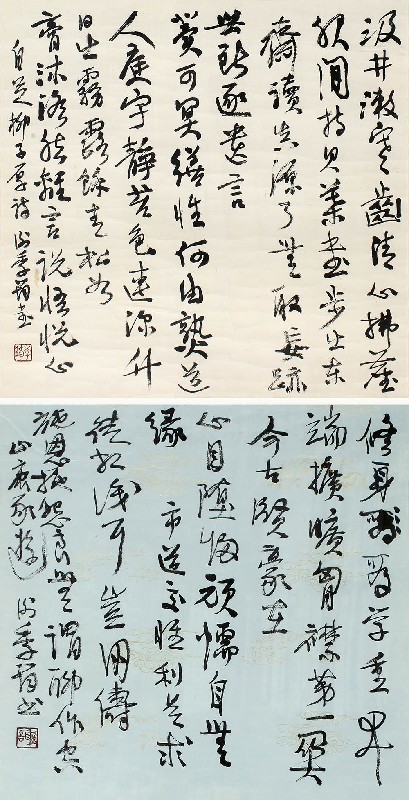 汲井漱寒齒清心拂塵
服閒持貝葉書步出東
齋讀真源了無取妄跡
世所逐遺言
冀可冥繕性何由熟道
人庭宇靜苔色連深竹
日出霧露餘青松如
膏沐澹然離言說悟悅心
自足柳子厚詩 季書
修身學重
端擴曠胸襟第一
今古賢豪在
心目頑懦自無
緣市道交惟利是求
徒相淺耳豈用儔
施恩報怨無謂聊作空
山鹿豕遊 季書